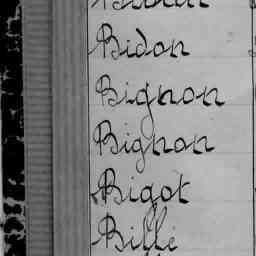 Bidon
Bignon
Bignon
Bigot
Billi